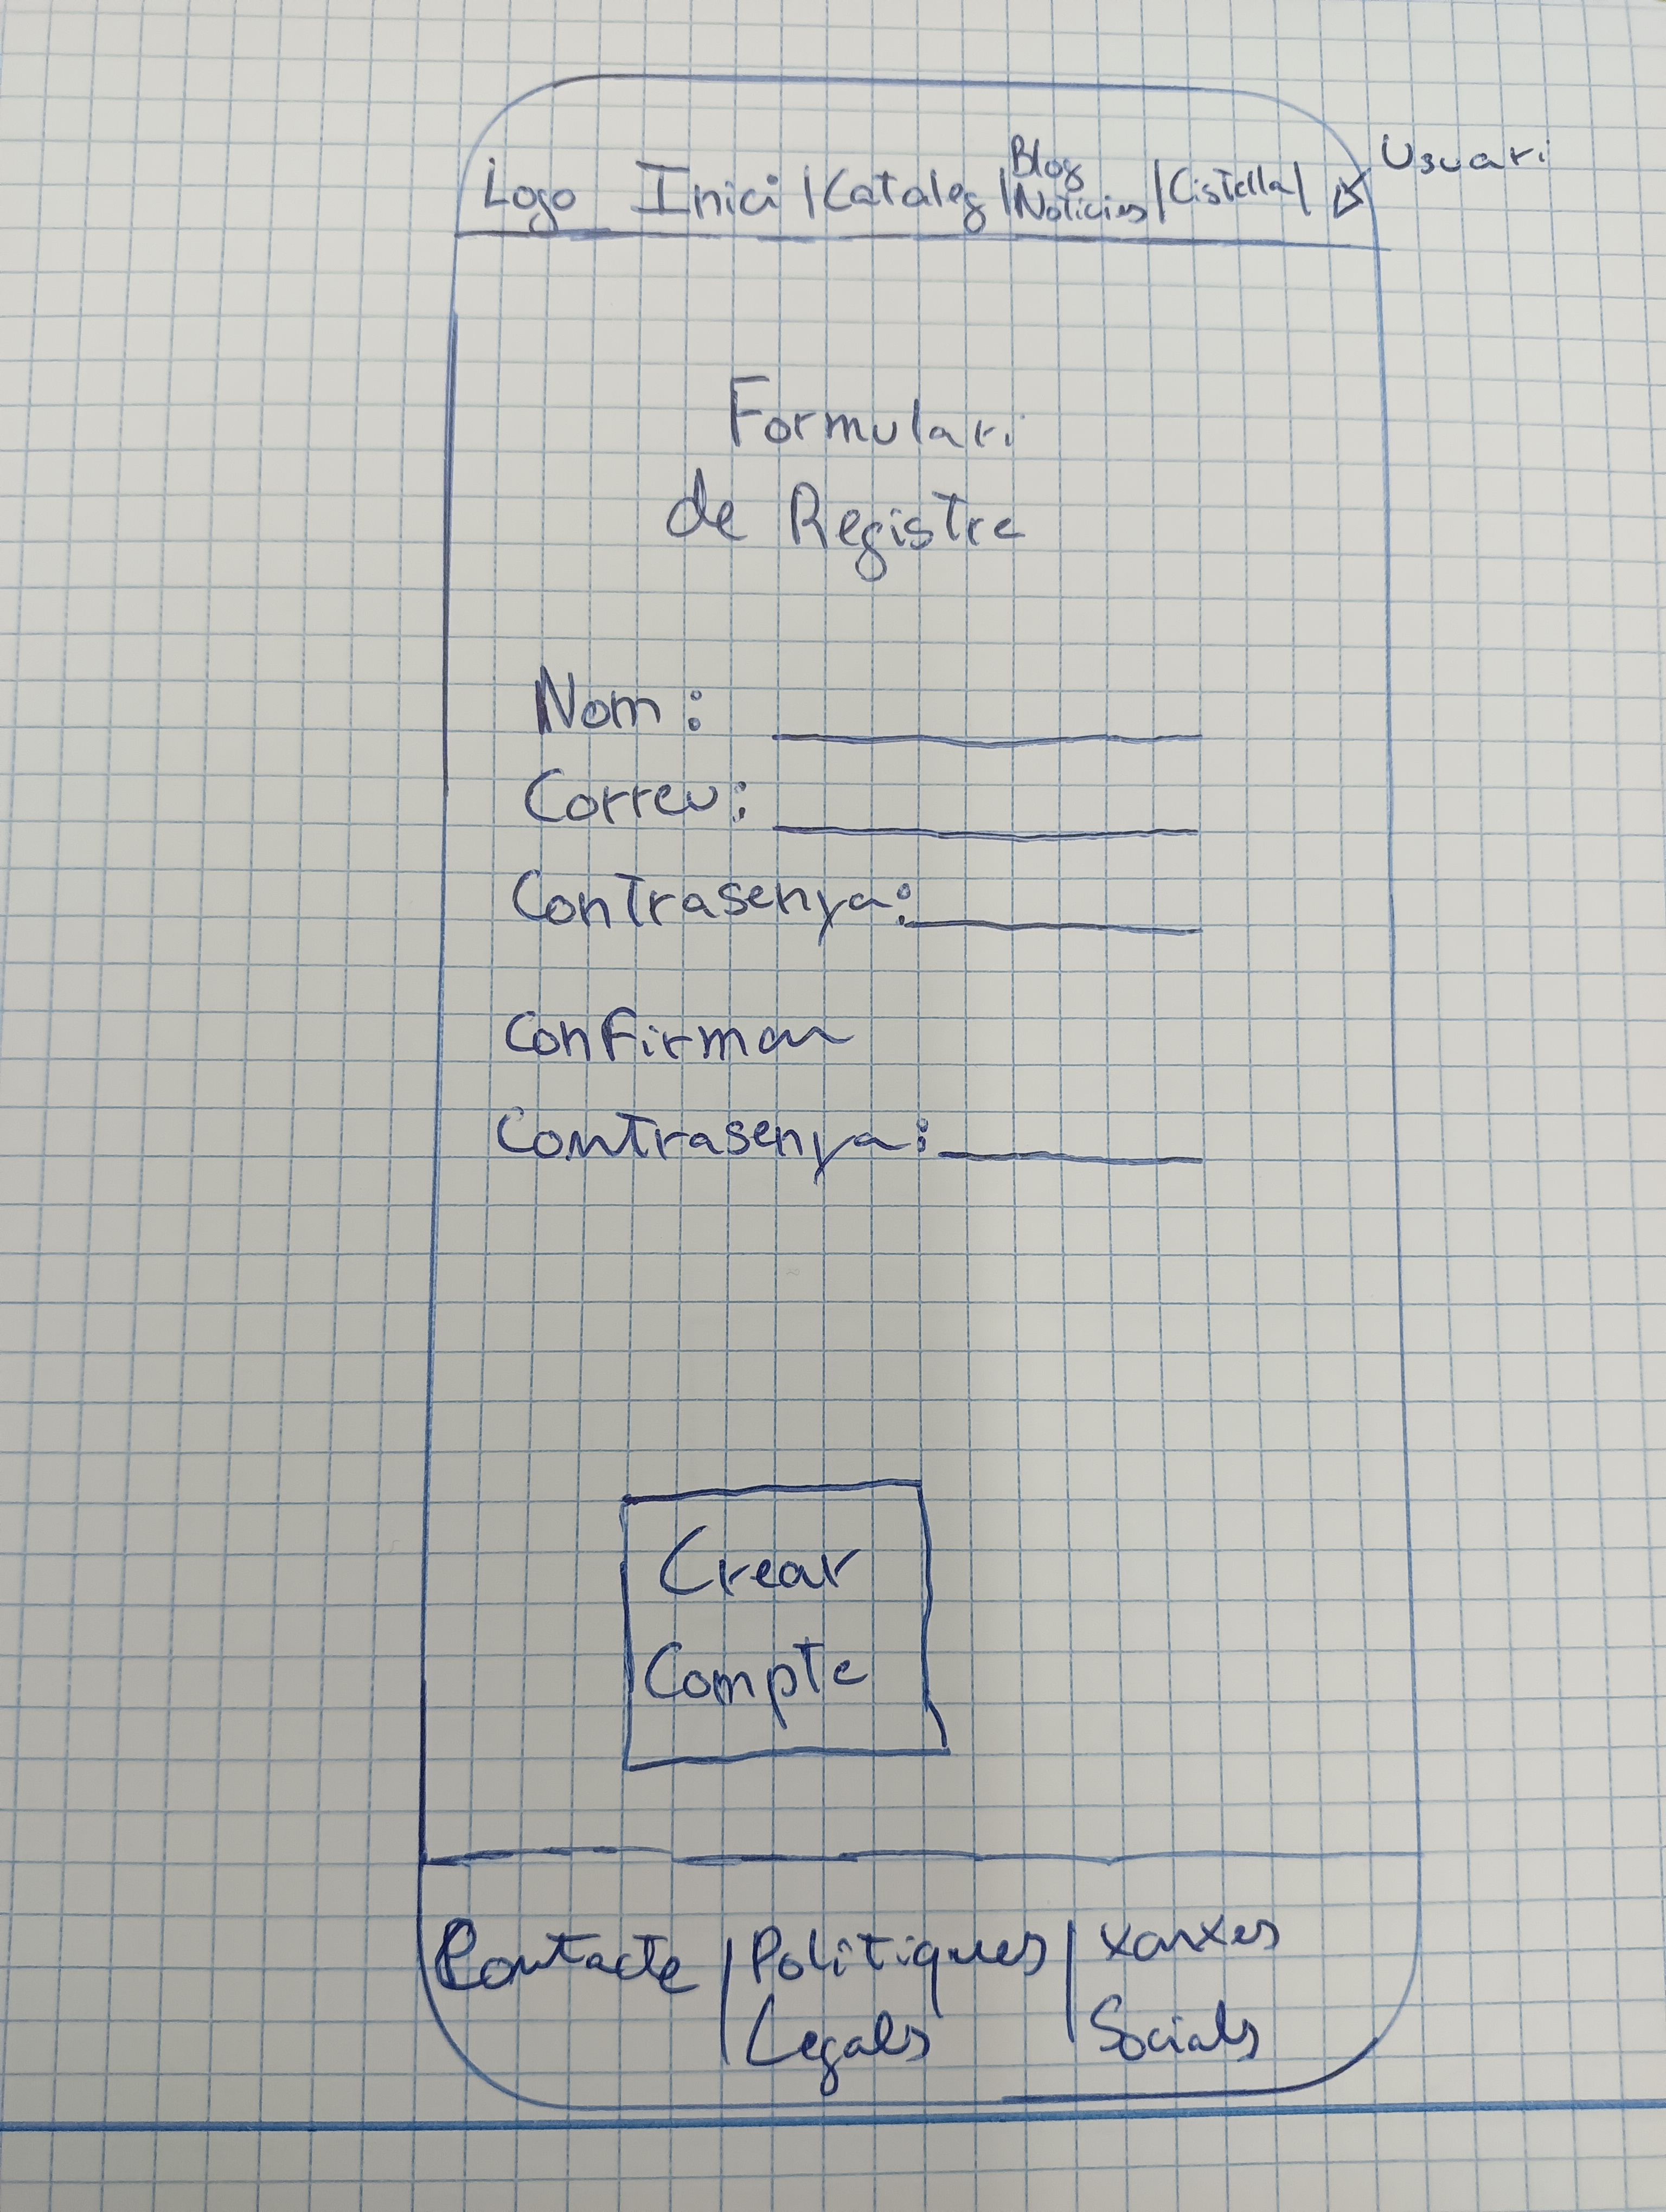 Usuari
Logo Inici | Cataleg | Blog Noticies | Cistella |
Formulari
de Registre
Nom :
Correu:
Contrasenya:
Confirmar
Contrasenya:
Crear
Compte
Contacte | Politiques | Xarxes
Legals Socials